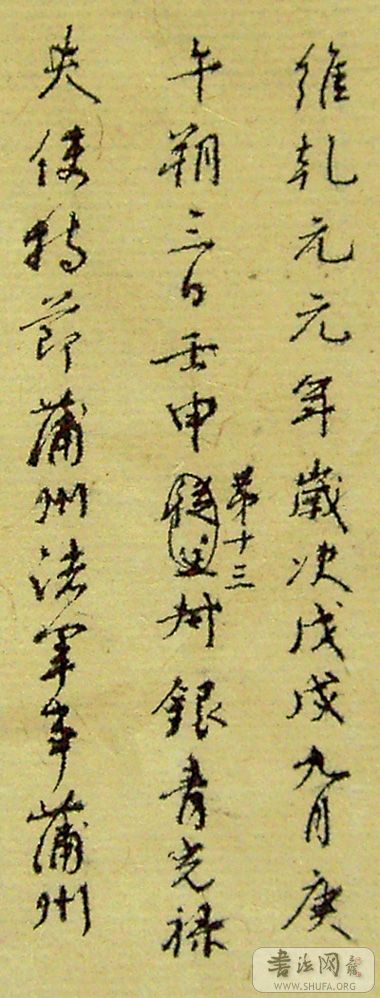 維乾元元年歲次戊戌九月庚
午朔三日壬申從父叔銀青光祿
第十三
夫使持節蒲州諸軍事蒲州
書法网
WWW.SHUFA.ORG